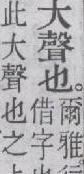 大聲也。爾雅
借字
此大聲也之